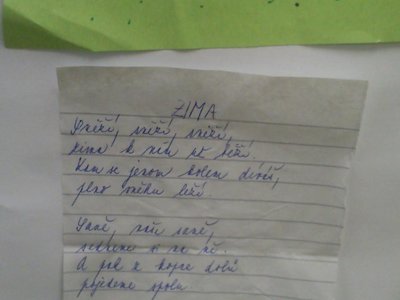 ZIMA
Sněží, sněží, sněží,
zima k nám už běží.
Kam se jenom kolem díváš,
plno sněhu leží.
Saně, naše saně,
sedneme si na ně.
A pak z kopce dolů
pojedeme spolu